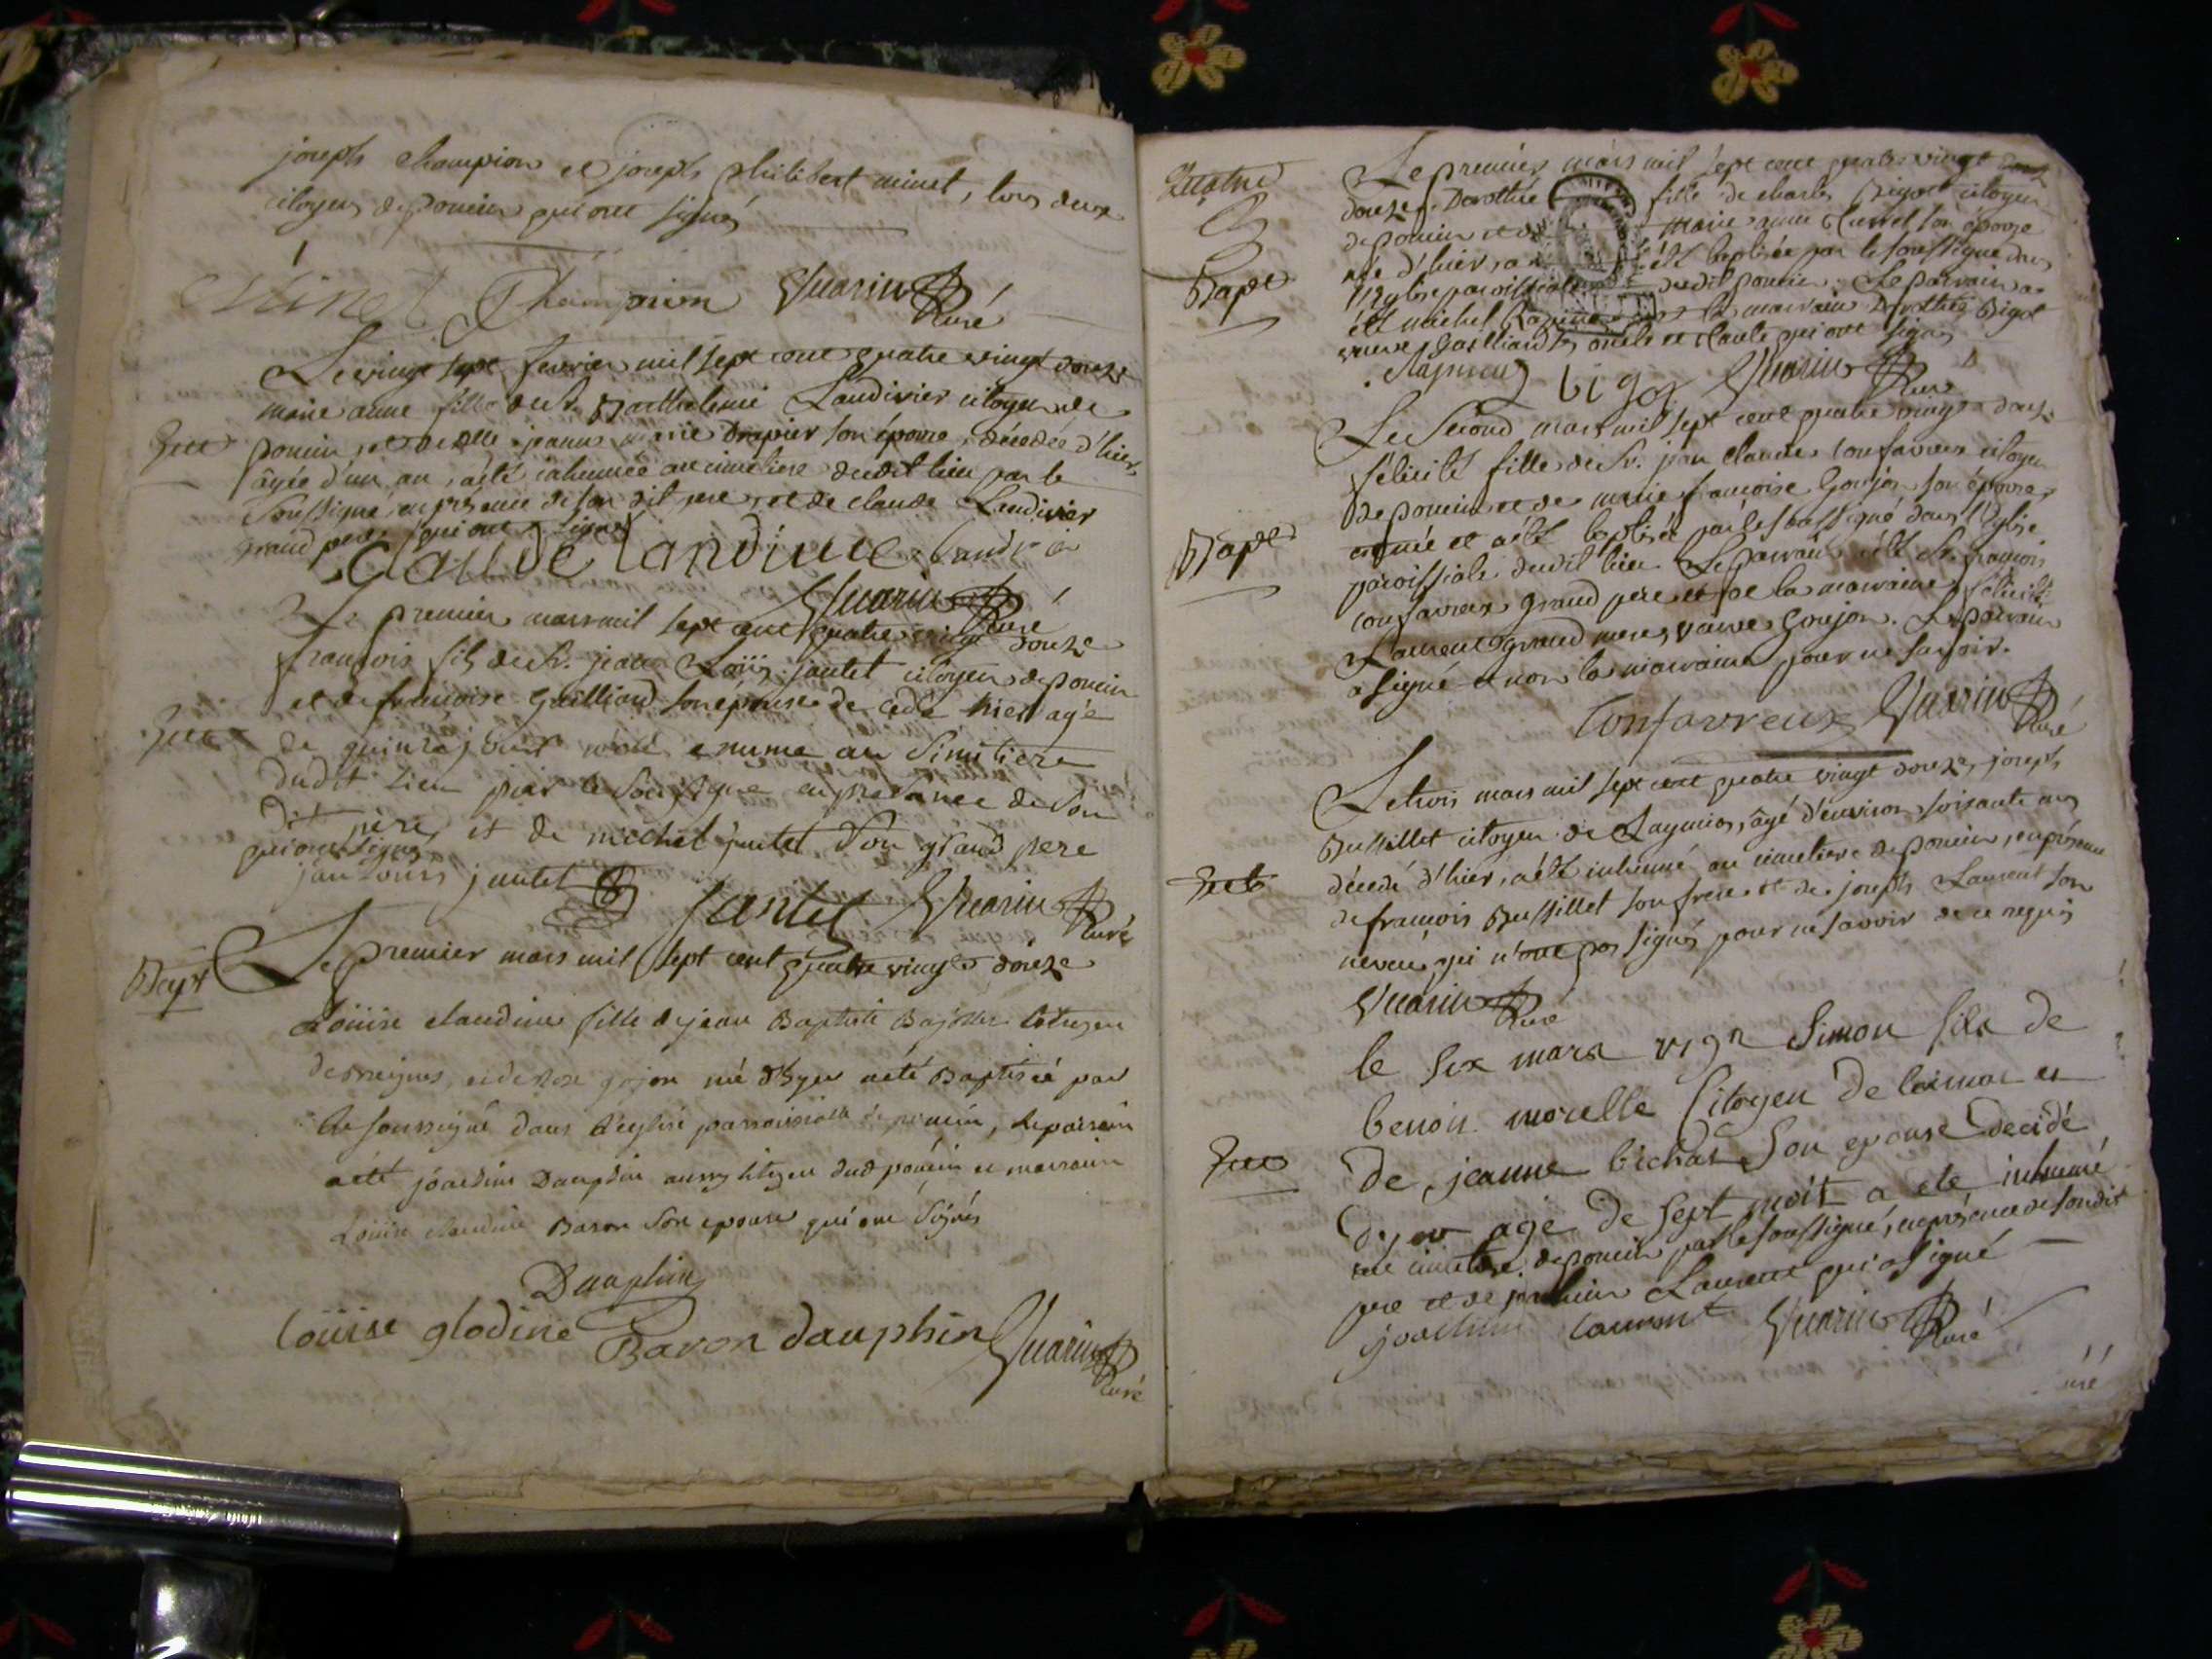 joseph Champion et joseph philibert minet, tous deux
citoyens de poncin qui ont signés
Minet Champion Vuarin Curé
Le vingt sept fevrier mil sept cent quatre vingt douze
marie anne fille de Sr. Barthelemi Landivier citoyen de
poncin, et de delle jeanne marie Drapier son épouse, décedée d'hier,
âgée d'un an, a été inhumée au cimetiere dudit lieu par le
Soussigné, en présence de son dit pere, et de claude Landivier
grand pere, qui ont signés
claude landivie Landivier
Vuarin Curé
Le premier mars mil sept cent quatre vingt douze
françois fils de Sr. jean Loüis jantet citoyen de poncin
et de françoise Guilliand son épouse de cédé hier agé
de quinze jours a été enume au Simitiere
dudit lieu par le Sousigné en presance de Son
dit père et de michel jantet Son grand pere
qui ont Signés
jan Louis jantet jantet Vuarin Curé
Bapt Le premier mars mil sept cent quatre vingt douze
Loüise claudine fille de jean Baptiste citoyen
de, et de gojon né d'hyer a été Baptisée par
le soussigné dans l'église parroissialle de poncin, le parrain
a été joachim Dauphin aussy citoyen dud poncin et marraine
Loüise claudine Baron Son epouse qui ont Signés
Dauphin
loüise glodine Baron dauphin Vuarin Curé
Quatre
Le premier mars mil sept cent quatre vingt
douze, Dorothée fille de charles Bigot citoyen
de poncin et de marie anne son épouse
née d'hier, a été baptisée par le soussigné dans
l'Eglise paroissiale dudit poncin. Le parrain a
Bapt
été michel la marraine Dorothée Bigot
veuve Gailliard, oncle et tante qui ont signés
bigot Vuarin Curé
Le Second mars mil sept cent quatre vingt douze
félicité fille de Sr. jean claude confavreux citoyen
de poncin et de marie françoise Goujon son épouse,
Bapt
est née et a été baptisée par le soussigné dans l'Eglise
paroissiale dudit lieu. Le parrain a été Sr. françois
confavreux grand pere et la marraine félicité
Laurent grand mere, veuve Goujon. Le parrain
a signé et non la marraine pour ne savoir.
Confavreux Vuarin Curé
Le trois mars mil sept cent quatre vingt douze, joseph
Bussillet citoyen de, âgé d'environ soixante ans
décedé d'hier, a été inhumé au cimetiere de poncin, en présence
de françois Bussillet son frere et de joseph Laurent son
neveu, qui n'ont pas signés pour ne savoir de ce requis
Vuarin Curé
le six mars Simon fils de
benoit morelle Citoyen de et
de jeanne bichat Son epouse decidé
agé de Sept moit a eté inhumé
au cimetiere de poncin par le soussigné, en présence de son dit
pere et de joachim Laurent qui a signé
joachim laurent Vuarin Curé